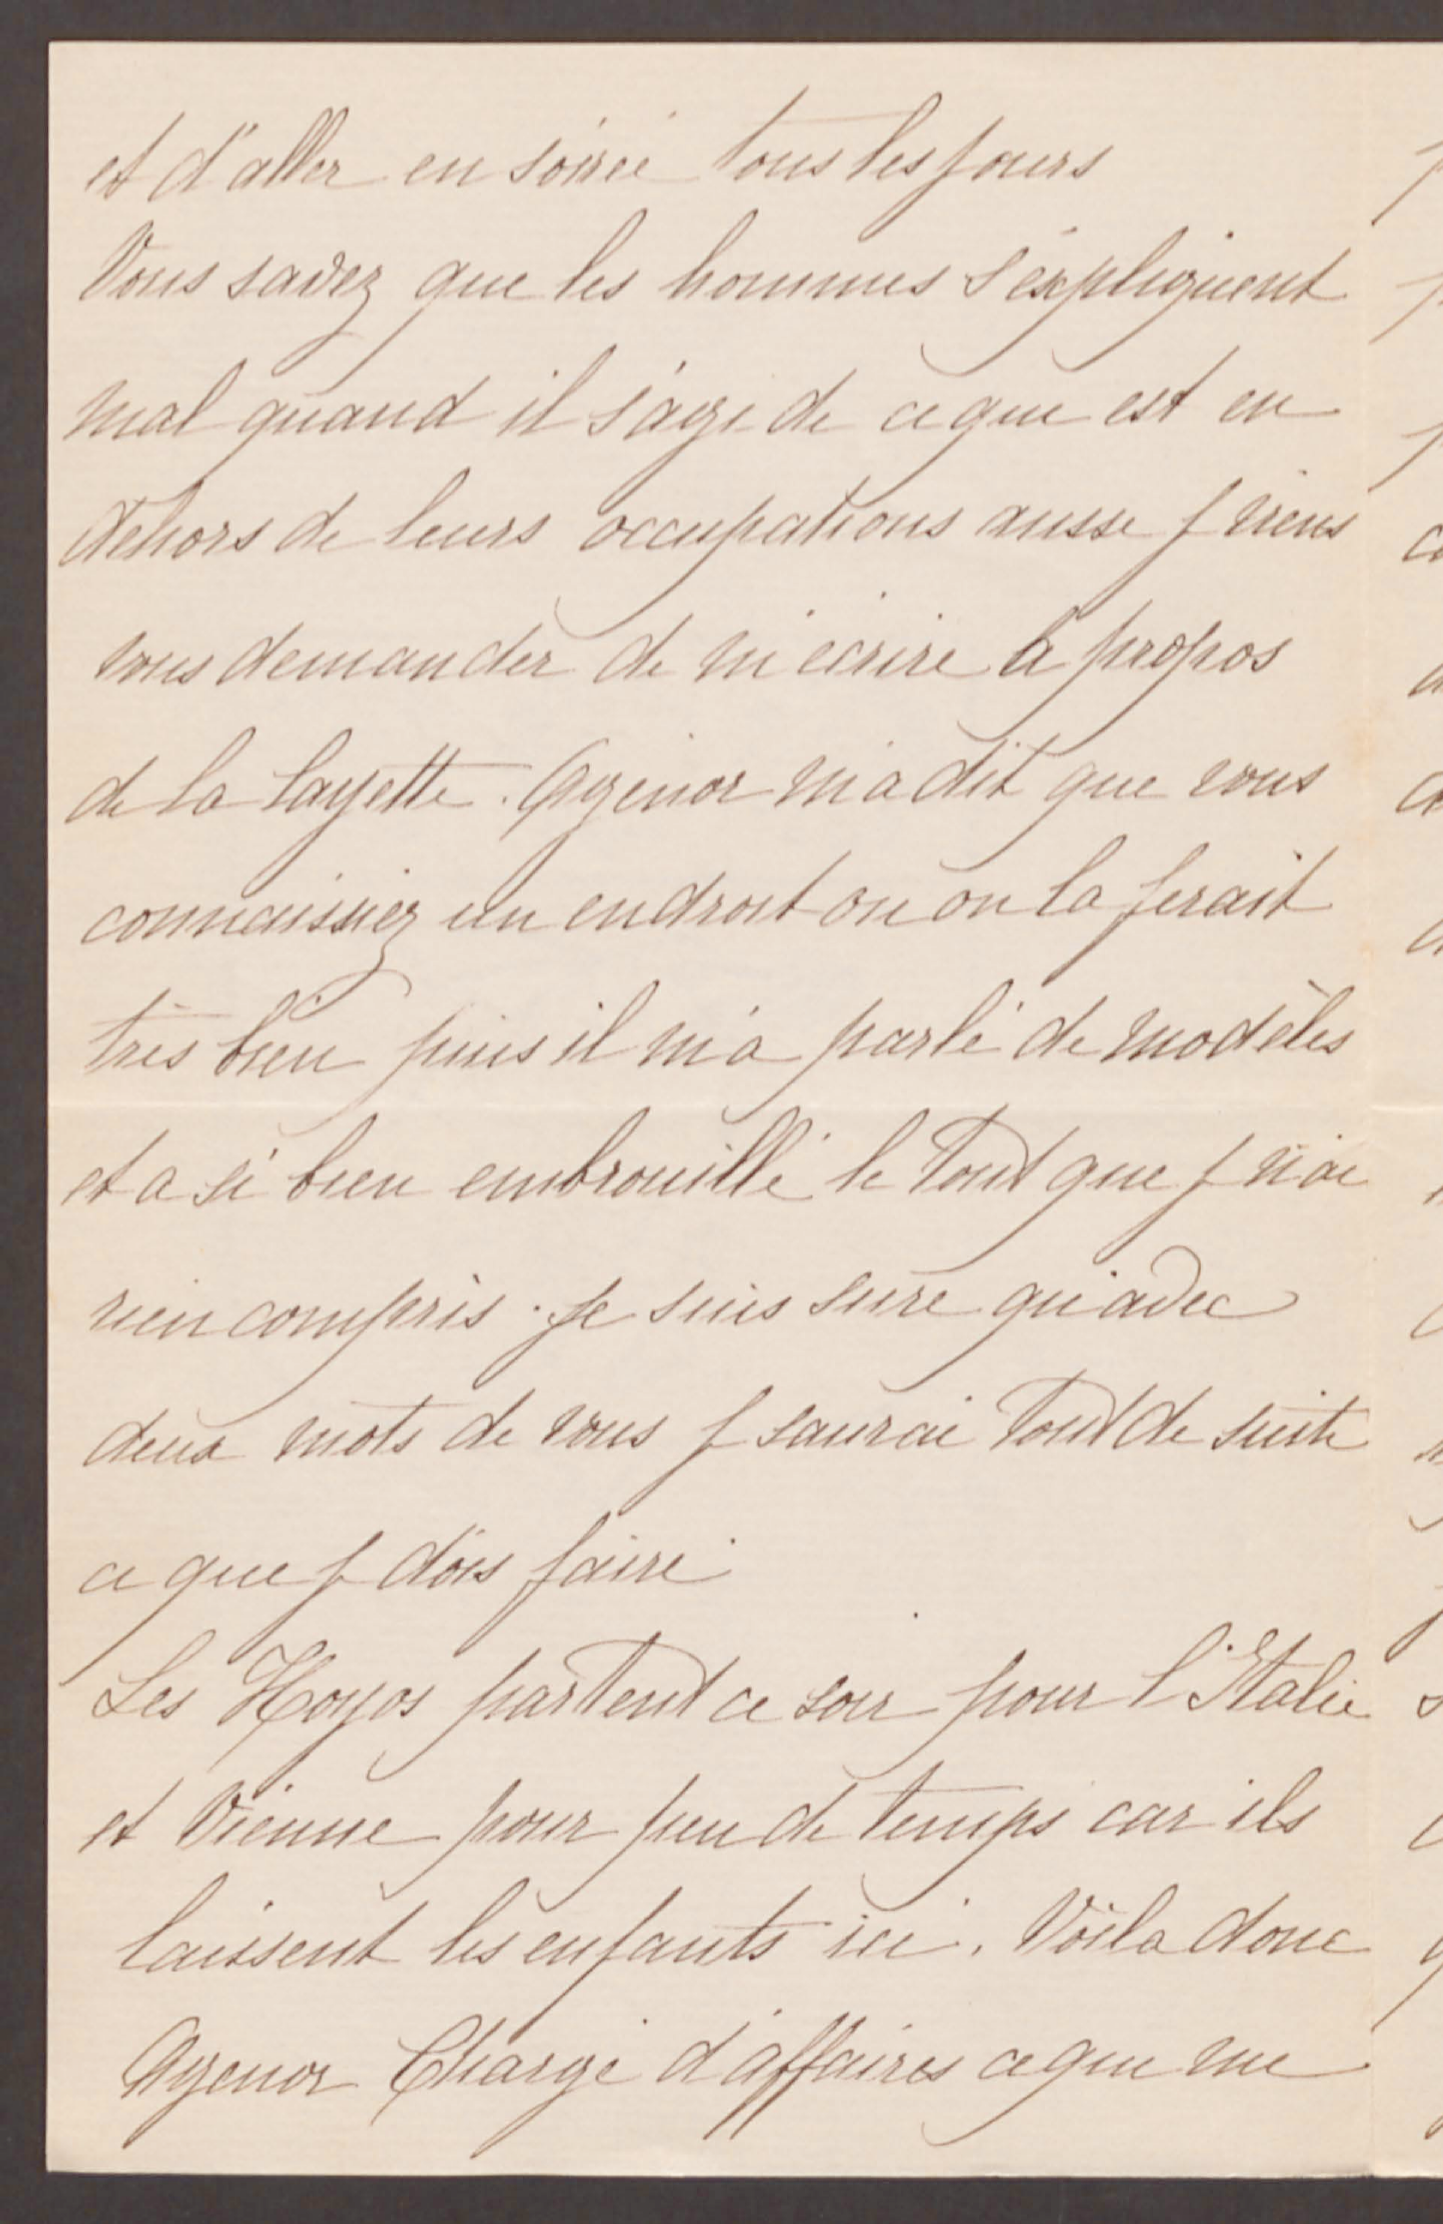 et d'aller en soirée tous les jours
Vous savez que les hommes s'expliquent
mal quand il s'agi de ce que est en
dehors de leurs occupations aussi j viens
vous demander de m'écrire à propos
de la layette. Agénor m'a dit que vous
connaissiez un endroit ou on la ferait
très bien puis il m'a parlé de modèles
et a si bien embrouillé le tout que j n'ai
rien compris. Je suis sure qu'avec
deux mots de vous j saurai tout de suite
ce que j dois faire.
Les Hoyos partent ce soir pour l'Italie
et Vienne pour peu de temps car ils
laissent les enfants ici. Voila donc
Agenor Chargé d'affaires ce que me